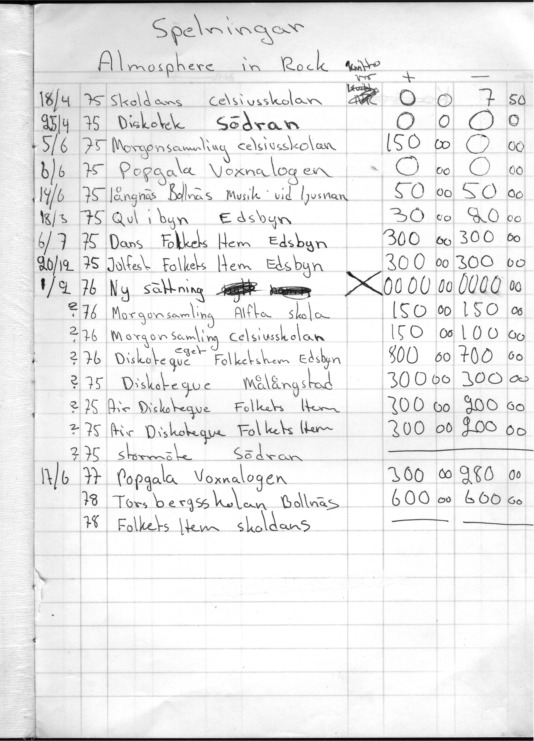 Spelningar
Atmosphere in Rock + —
18/4 75 Skoldans Celsiusskolan 0 0 7 50
25/4 75 Diskotek Södran 0 0 0 0
5/6 75 Morgonsamling Celsiusskolan 150 00 0 00
6/6 75 Popgala Voxnalogen 0 00 0 00
14/6 75 Långnäs Bollnäs Musik vid ljusnan 50 00 50 00
18/3 75 Qul i byn Edsbyn 30 00 20 00
6/7 75 Dans Folkets Hem Edsbyn 300 00 300 00
20/12 75 Julfest Folkets Hem Edsbyn 300 00 300 00
1/2 76 Ny sättning X 0000 00 0000 00
? 76 Morgonsamling Alfta skola 150 00 150 00
? 76 Morgonsamling Celsiusskolan 150 00 100 00
? 76 Diskoteque eget Folketshem Edsbyn 800 00 700 00
? 75 Diskoteque Målångstad 300 00 300 00
? 75 Air Diskoteque Folkets Hem 300 00 200 00
? 75 Air Diskoteque Folkets Hem 300 00 200 00
? 75 stormöte Södran
17/6 77 Popgala Voxnalogen 300 00 280 00
78 Torsbergsskolan Bollnäs 600 00 600 00
78 Folkets Hem skoldans